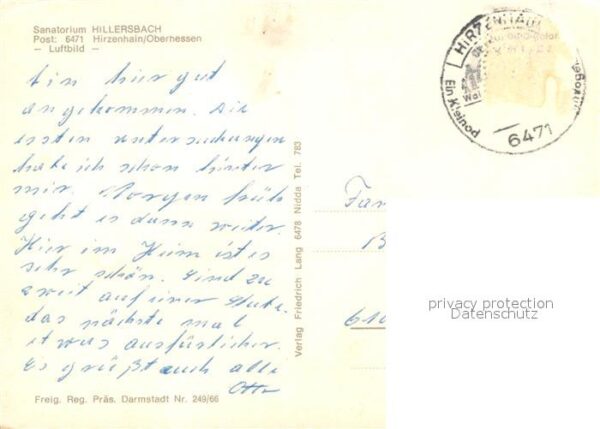 Sanatorium HILLERSBACH
Post: 6471 Hirzenhain/Oberhessen
– Luftbild –
bin hier gut
angekommen. Die
ersten untersuchungen
habe ich schon hinter
mir. Morgen früh
geht es dann weiter.
Hier im Heim ist es
sehr schön. Sind zu
zweit auf einer Stube.
das nächste mal
etwas ausfürlicher.
Es grüßt auch alle
Otto
Freig. Reg. Präs. Darmstadt Nr. 249/66
Verlag Friedrich Lang 6478 Nidda Tel. 783
HIRZENHAIN
Ein Kleinod
6471
Fam
B
610
privacy protection
Datenschutz